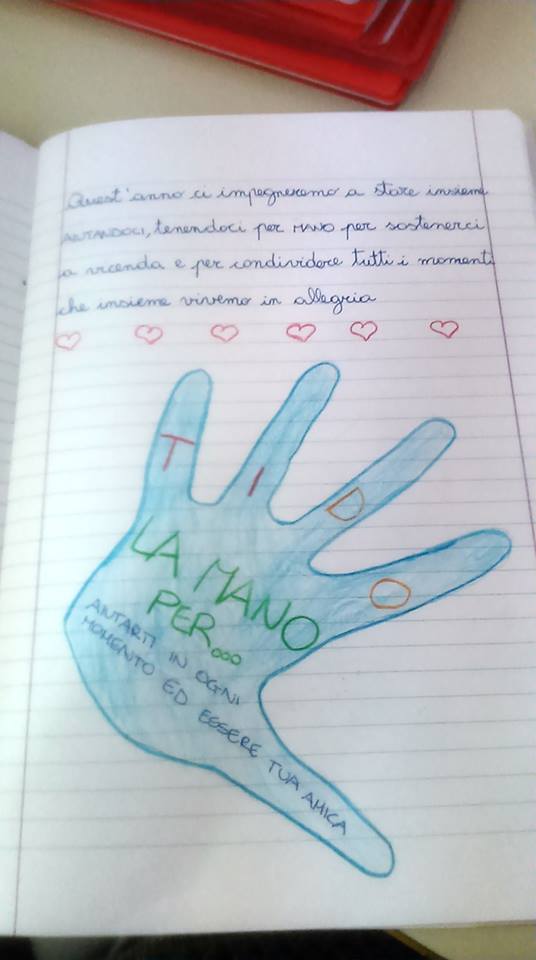 Quest'anno ci impegneremo a stare insieme
AIUTANDOCI, tenendoci per MANO per sostenerci
a vicenda e per condividere tutti i momenti
che insieme vivremo in allegria
T I D O
LA MANO
PER...
AIUTARTI IN OGNI
MOMENTO ED ESSERE TUA AMICA